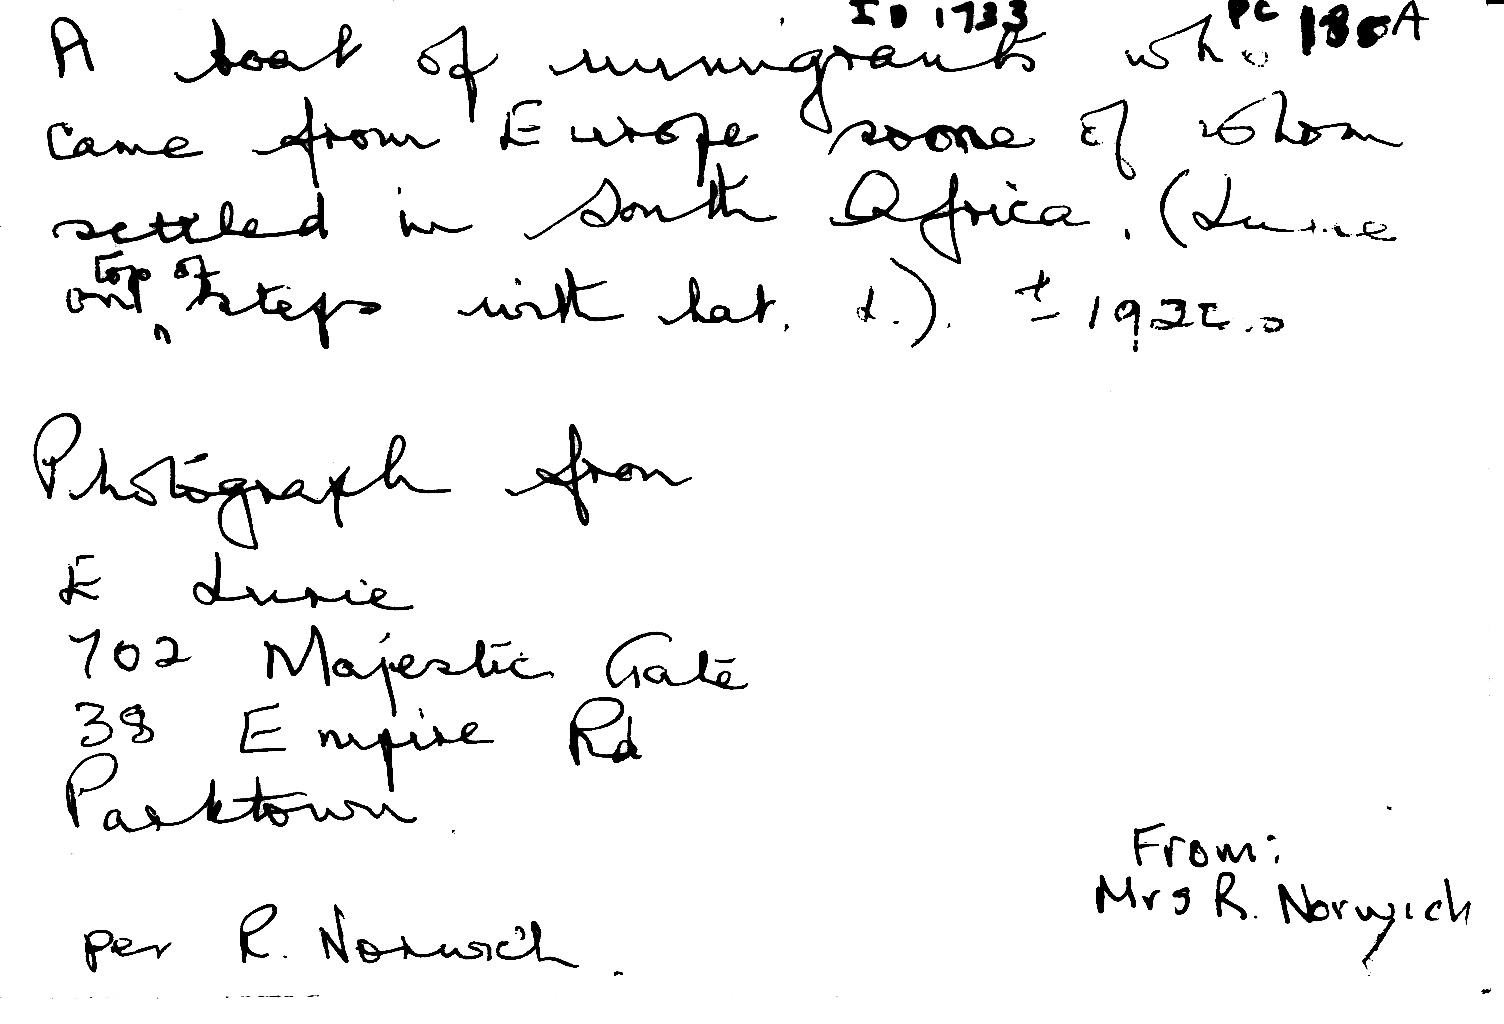 ID 1733 PC 180A
A boat of immigrants who
came from Europe some of whom
settled in South Africa. (Lurie
on top of steps with hat.
± 192
Photograph from
E Lurie
702 Majestic Gate
38 Empire Rd
Parktown
From:
Mrs R. Norwich
per R. Norwich.